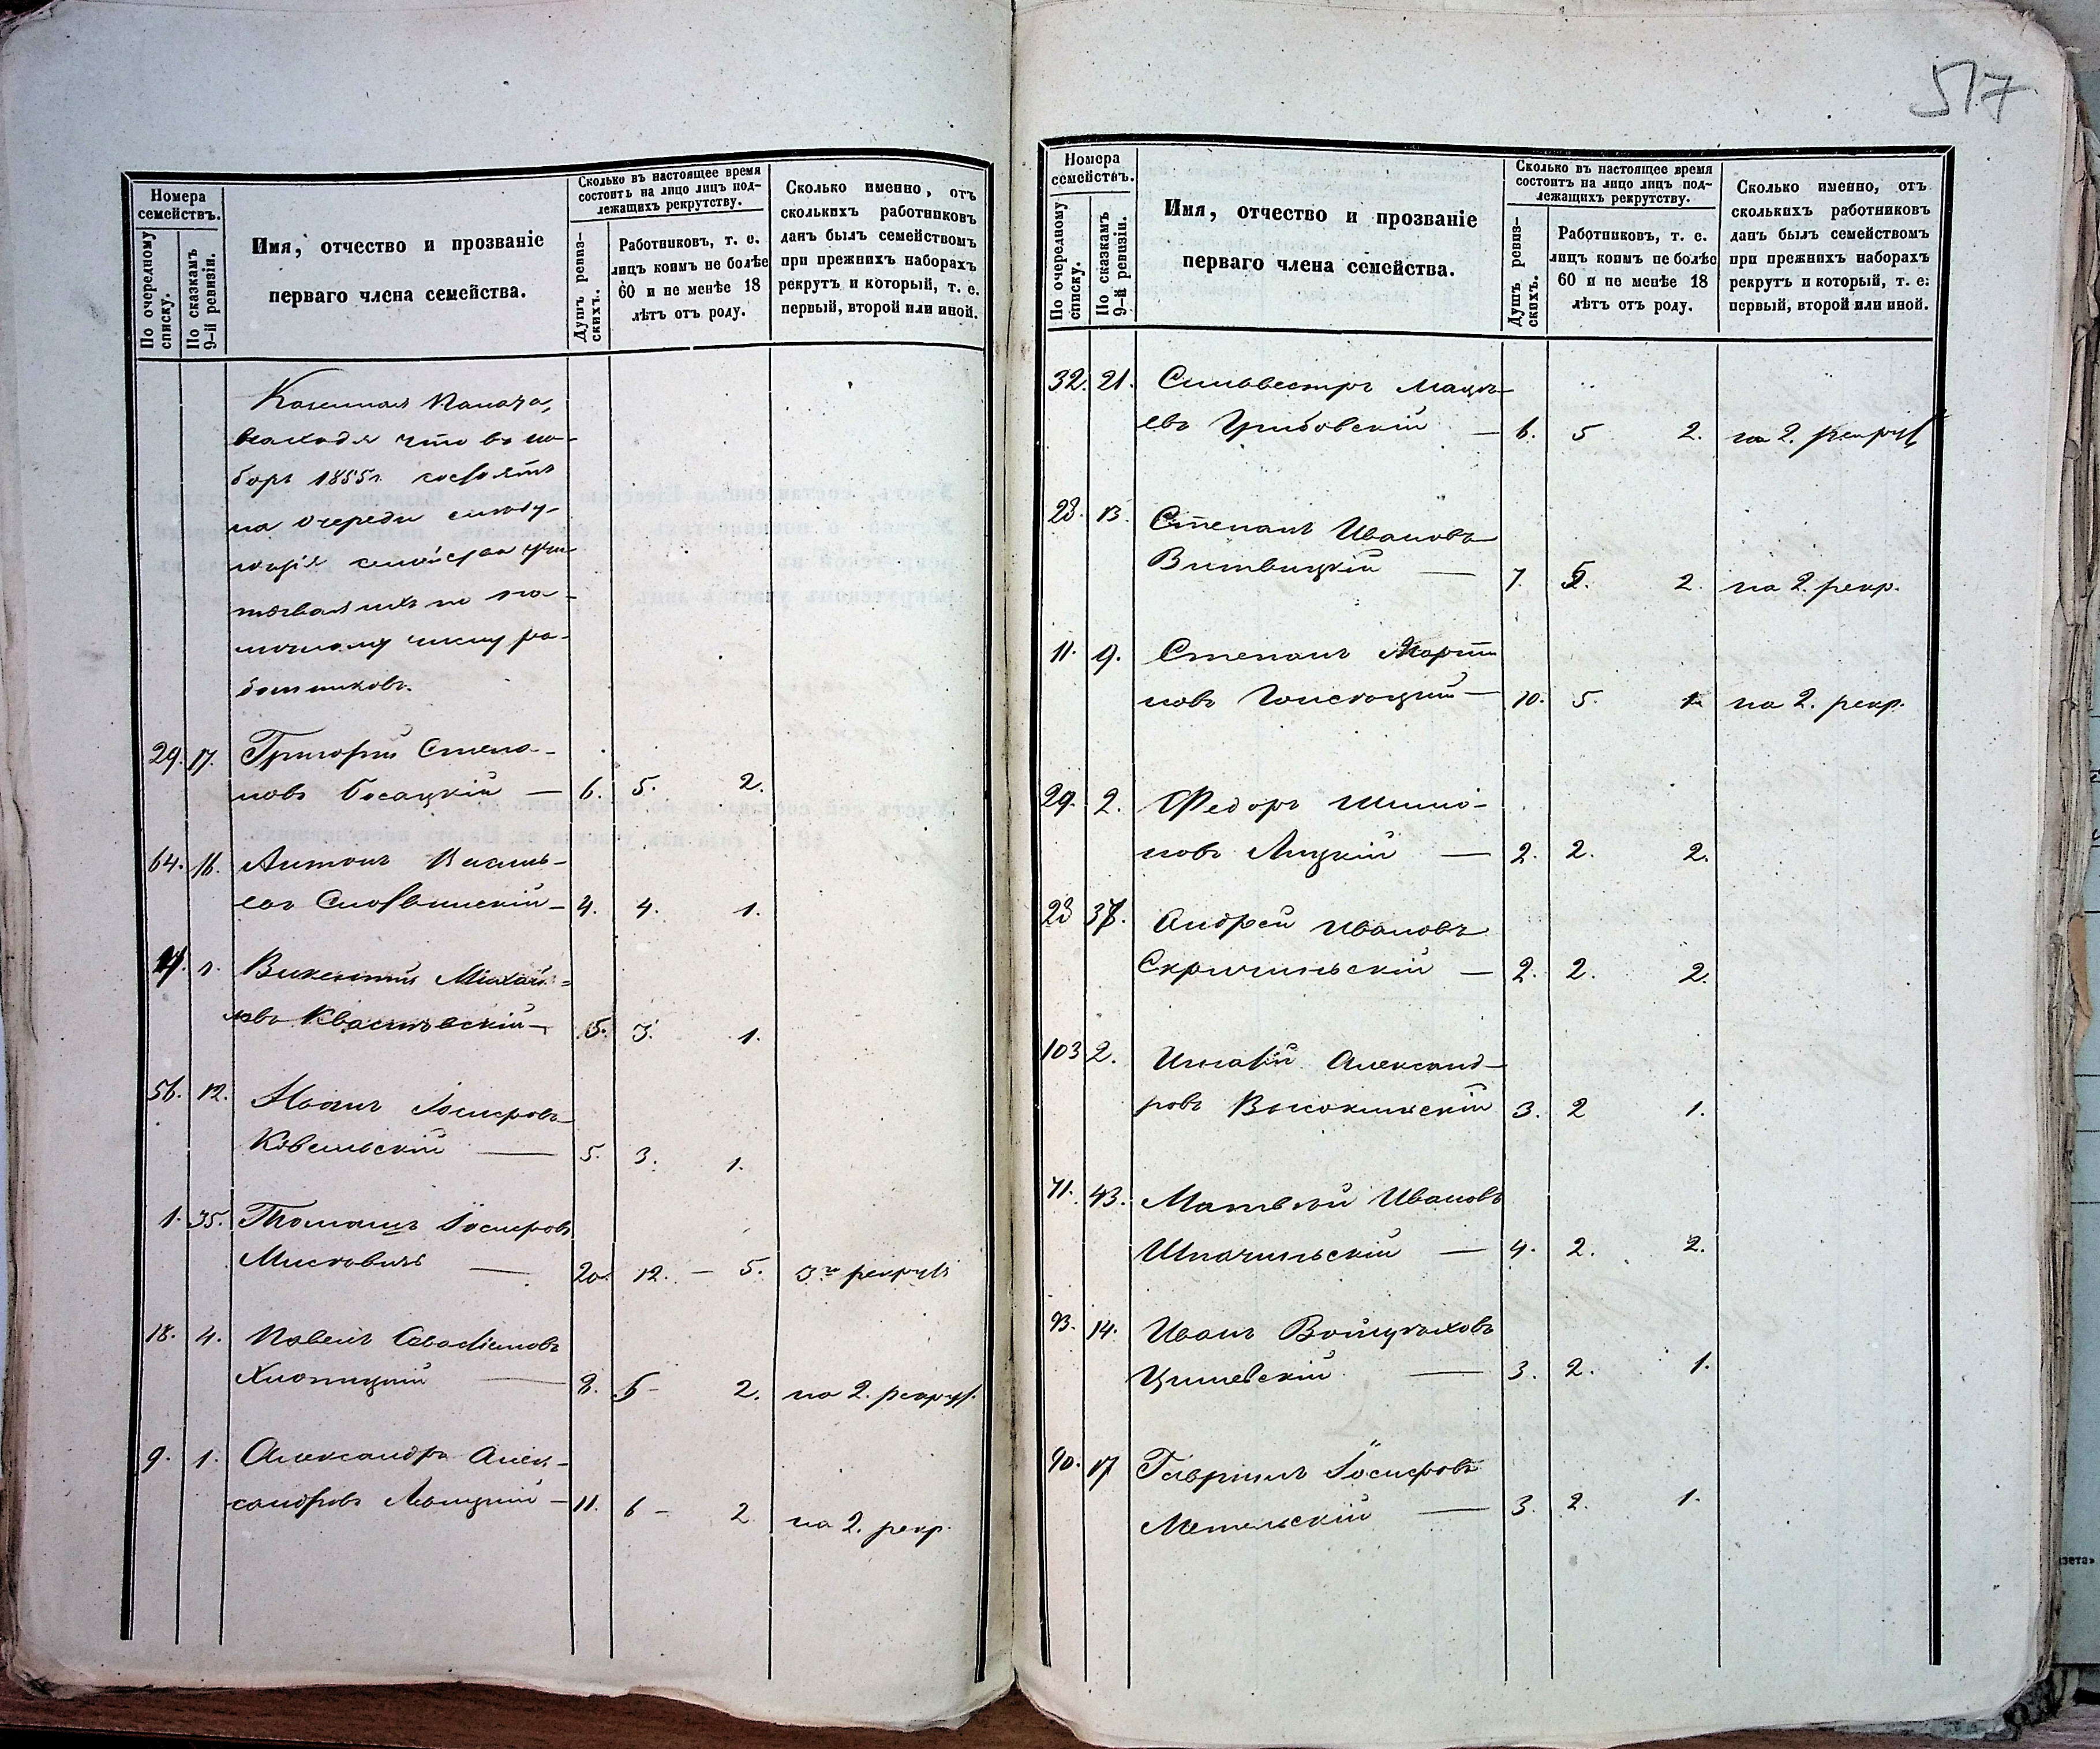 Номера
семействъ.
По очередному
списку.
По сказкамъ
9-й ревизіи.
Имя, отчество и прозваніе
перваго члена семейства.
Сколько въ настоящее время
состоитъ на лицо лицъ под-
лежащихъ рекрутству.
Душъ ревиз-
скихъ.
Работниковъ, т. е.
лицъ коимъ не болѣе
60 и не менѣе 18
лѣтъ отъ роду.
Сколько именно, отъ
сколькихъ работниковъ
данъ былъ семействомъ
при прежнихъ наборахъ
рекрутъ и который, т. е.
первый, второй или иной.
Казенная Палата,
находя что въ на-
боръ 1855г. состоятъ
на очереди слѣду-
ющія семейства
по на-
личному числу ра-
ботниковъ.
29. 17. Григорій Степа-
новъ Босацкій — 6. 5. 2.
64. 16. Антонъ Василь-
евъ — 4. 4. 1.
Викентій Михай-
ловъ 5. 3. 1.
56. 12. Иванъ Іосифовъ
Ковельскій — 5. 3. 1.
1. 35. Томашъ Іосифовъ
— 20. 12. — 5. 3й рекрутъ
18. 4. Павелъ Севастіановъ
Хлопицкій — 8. 5 — 2. на 2. рекрут.
9. 1. Александръ Алек-
сандровъ — 11. 6 — 2 на 2. рекр.
517
Номера
семействъ.
По очередному
списку.
По сказкамъ
9-й ревизіи.
Имя, отчество и прозваніе
перваго члена семейства.
Сколько въ настоящее время
состоитъ на лицо лицъ под-
лежащихъ рекрутству.
Душъ ревиз-
скихъ.
Работниковъ, т. е.
лицъ коимъ не болѣе
60 и не менѣе 18
лѣтъ отъ роду.
Сколько именно, отъ
сколькихъ работниковъ
данъ былъ семействомъ
при прежнихъ наборахъ
рекрутъ и который, т. е:
первый, второй или иной.
32. 21. Сильвестръ Мацѣ-
евъ Грибовскій — 6. 5 2. на 2. рекрут
28. 13. Степанъ Ивановъ
Витвицкій — 7. 5. 2. на 2. рекр.
11. 9. Степанъ Марти
новъ — 10. 5. 1. на 2. рекр.
29. 2. Федоръ
новъ Лицкій — 2. 2. 2.
28 Андрей Ивановъ
— 2. 2. 2.
103 2. Игнатій Александ-
ровъ 3. 2 1.
71. 43. Матвѣй Ивановъ
— 4. 2. 2.
93. 14. Иванъ Войцѣховъ
— 3. 2. 1.
90. 17 Гавріилъ Іосифовъ
Метельскій — 3. 2. 1.